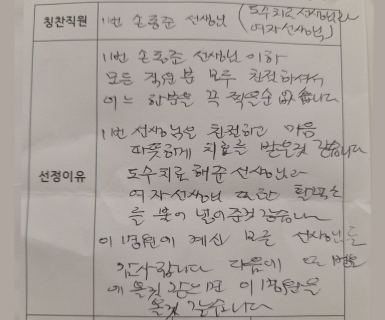 칭찬직원
11번 손종준 선생님 (도수치료 선생님과
여자선생님)
선정이유
11번 손종준 선생님 이하
모든 직원분 모두 친절하셔서
어느 한분을 꼭 찍을순 없습니다
11번 선생님은 친절하고 마음
따뜻하게 치료를 받은것 같습니다
도수치료 해준 선생님과
여자선생님 또한 활력소
를 불어 넣어준것 같습니다
이 병원에 계신 모든 선생님들
감사합니다 다음에 또 병원
에 올것 같으면 이 병원을
올것 같습니다